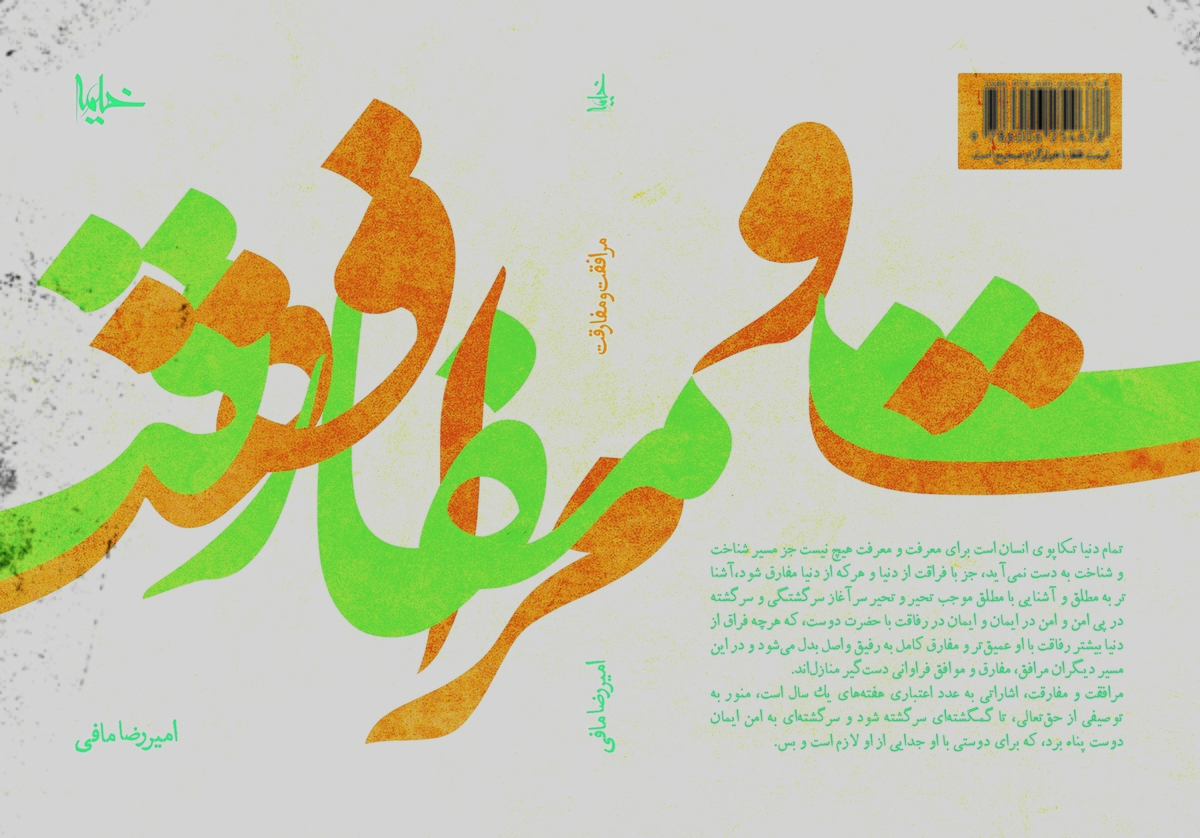 مرافقت و مفارقت
امیررضا مافی
خیلیها
مرافقت و مفارقت
امیررضا مافی
تمام دنیا تکاپوی انسان است برای معرفت و معرفت هیچ نیست جز مسیر شناخت
و شناخت به دست نمی‌آید، جز با فراقت از دنیا و هرکه از دنیا مفارق شود،آشنا
تر به مطلق و آشنایی با مطلق موجب تحیر و تحیر سرآغاز سرگشتگی و سرگشته
در پی امن و امن در ایمان و ایمان در رفاقت با حضرت دوست، که هرچه فراق از
دنیا بیشتر رفاقت با او عمیق‌تر و مفارق کامل به رفیق واصل بدل می‌شود و در این
مسیر دیگران مرافق، مفارق و موافق فراوانی دست‌گیر منازل‌اند.
مرافقت و مفارقت، اشاراتی به عدد اعتباری هفته‌های یك سال است، منور به
توصیفی از حق‌تعالی، تا گمگشته‌ای سرگشته شود و سرگشته‌ای به امن ایمان
دوست پناه برد، که برای دوستی با او جدایی از او لازم است و بس.
قیمت فقط با هولوگرام صحیح است